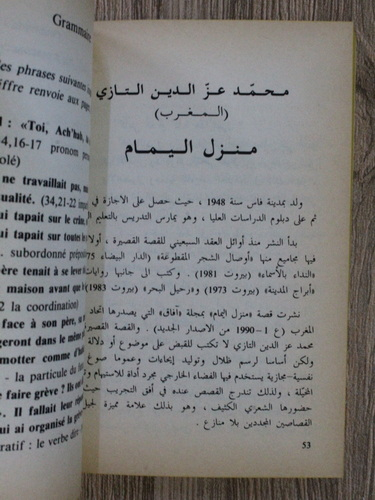 Grammaire
les phrases suivantes
chiffre renvoie aux page
: «Toi, Ach'hab,
4,16-17 pronom per
olé)
ne travaillait pas,
ualité. (34,21-22
ui tapait sur le crâne
ui tapait sur toutes
subordonné
ère tenait à se lever
maison avant que
2 la coordination)
face à son père, su
geront dans le même
motter comme d'hab
- la particule du
faire grève ? Ils ont
». Il fallait leur
ui ai organisé la
ratif : le verbe dire
محمّد عزّ الدين التازي
(المغرب)
منزل اليمام
ولد بمدينة فاس سنة 1948 ، حيث حصل على الاجازة في
ثم على دبلوم الدراسات العليا ، وهو يمارس التدريس بالتعليم
بدأ النشر منذ أوائل العقد السبعيني للقصة القصيرة ، أولا
فيها مجاميع منها «أوصال الشجر المقطوعة» (الدار البيضاء 75
«النداء بالأسماء» (بيروت 1981) . وكتب الى جانبها روايات
«أبراج المدينة» (بيروت 1973) و «رحيل البحر» (بيروت 1983)
نشرت قصة «منزل اليمام» بمجلة «آفاق» التي يصدرها اتحاد
المغرب (ع 1 – 1990 من الاصدار الجديد) . والقصة القصيرة
محمد عز الدين التازي لا تكتب للقبض على موضوع أو دلالة
ولكن أساسا لرسم ظلال وتوليد إيحاءات وعموما صوغ
نفسية-مجازية يستخدم فيها الفضاء الخارجي مجرد أداة للاستيهام
المخيّلة ، ولذلك تندرج القصص عنده في أفق التجريب حيث
حضورها الشعري الكثيف ، وهو بذلك علامة مميزة لجيل
القصاصين المجددين بلا منازع .
53